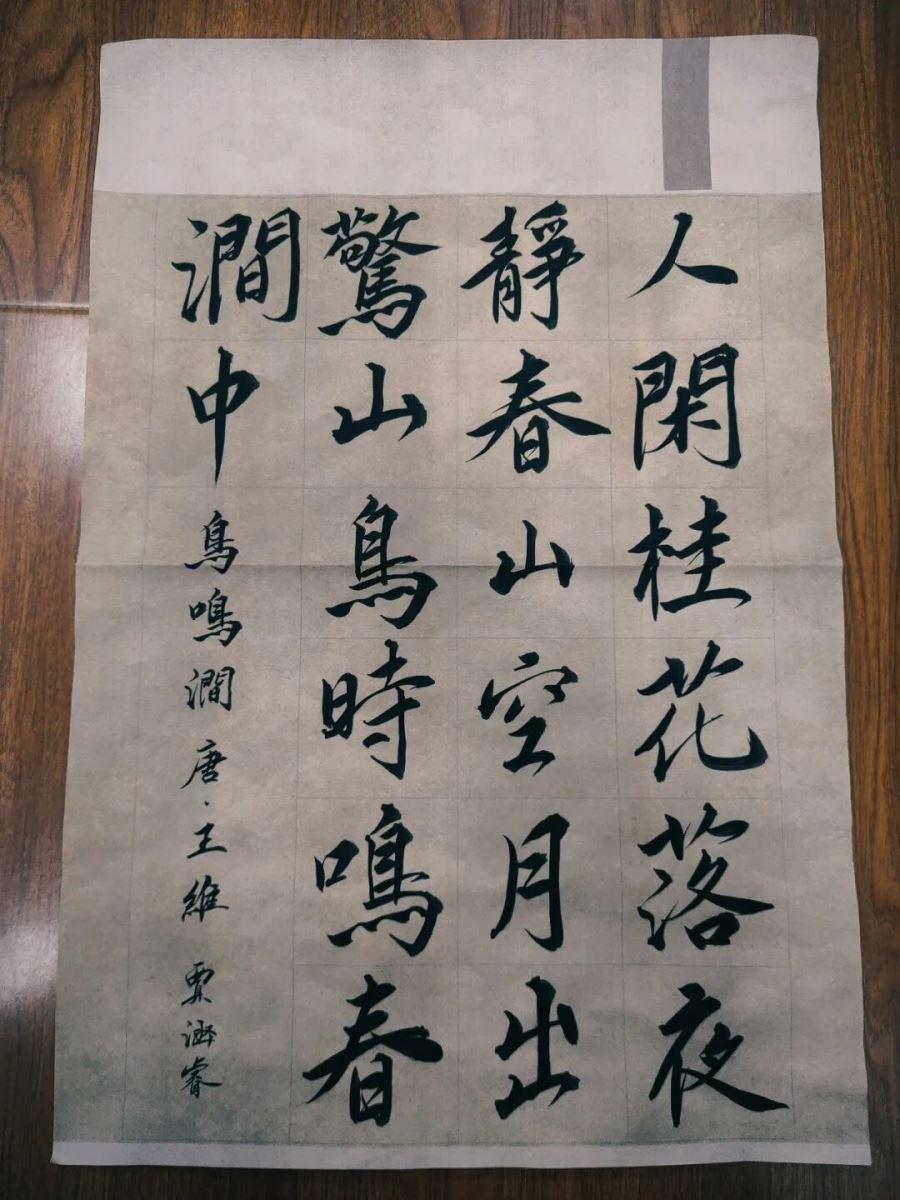 人閑桂花落夜
靜春山空月出
驚山鳥時鳴春
澗中
鳥鳴澗 唐·王維 賈涵睿